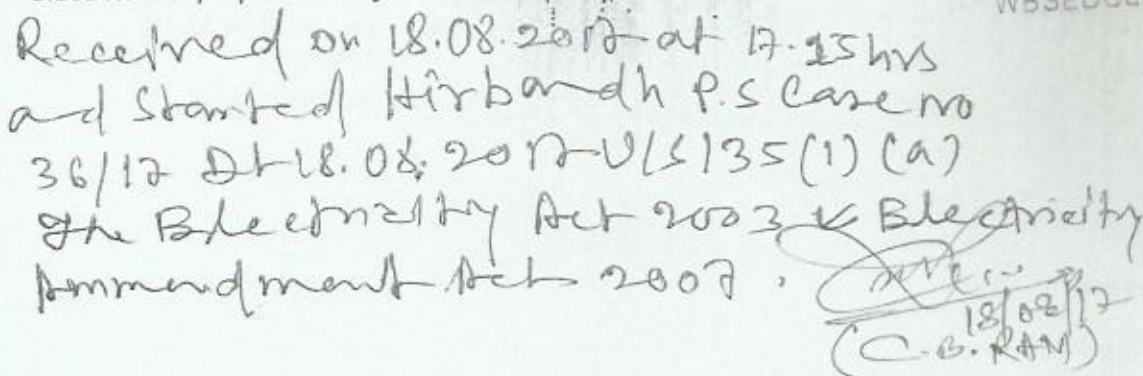 WBSEDCL
Received on 18.08.2017 at 17.25 hrs
and Started Hirbandh P.S Case no
36/17 Dt 18.08.2017 U/S 135(1) (a)
The Electricity Act 2003 & Electricity
Ammendment Act 2007.
18/08/17
(C.B. RAM)